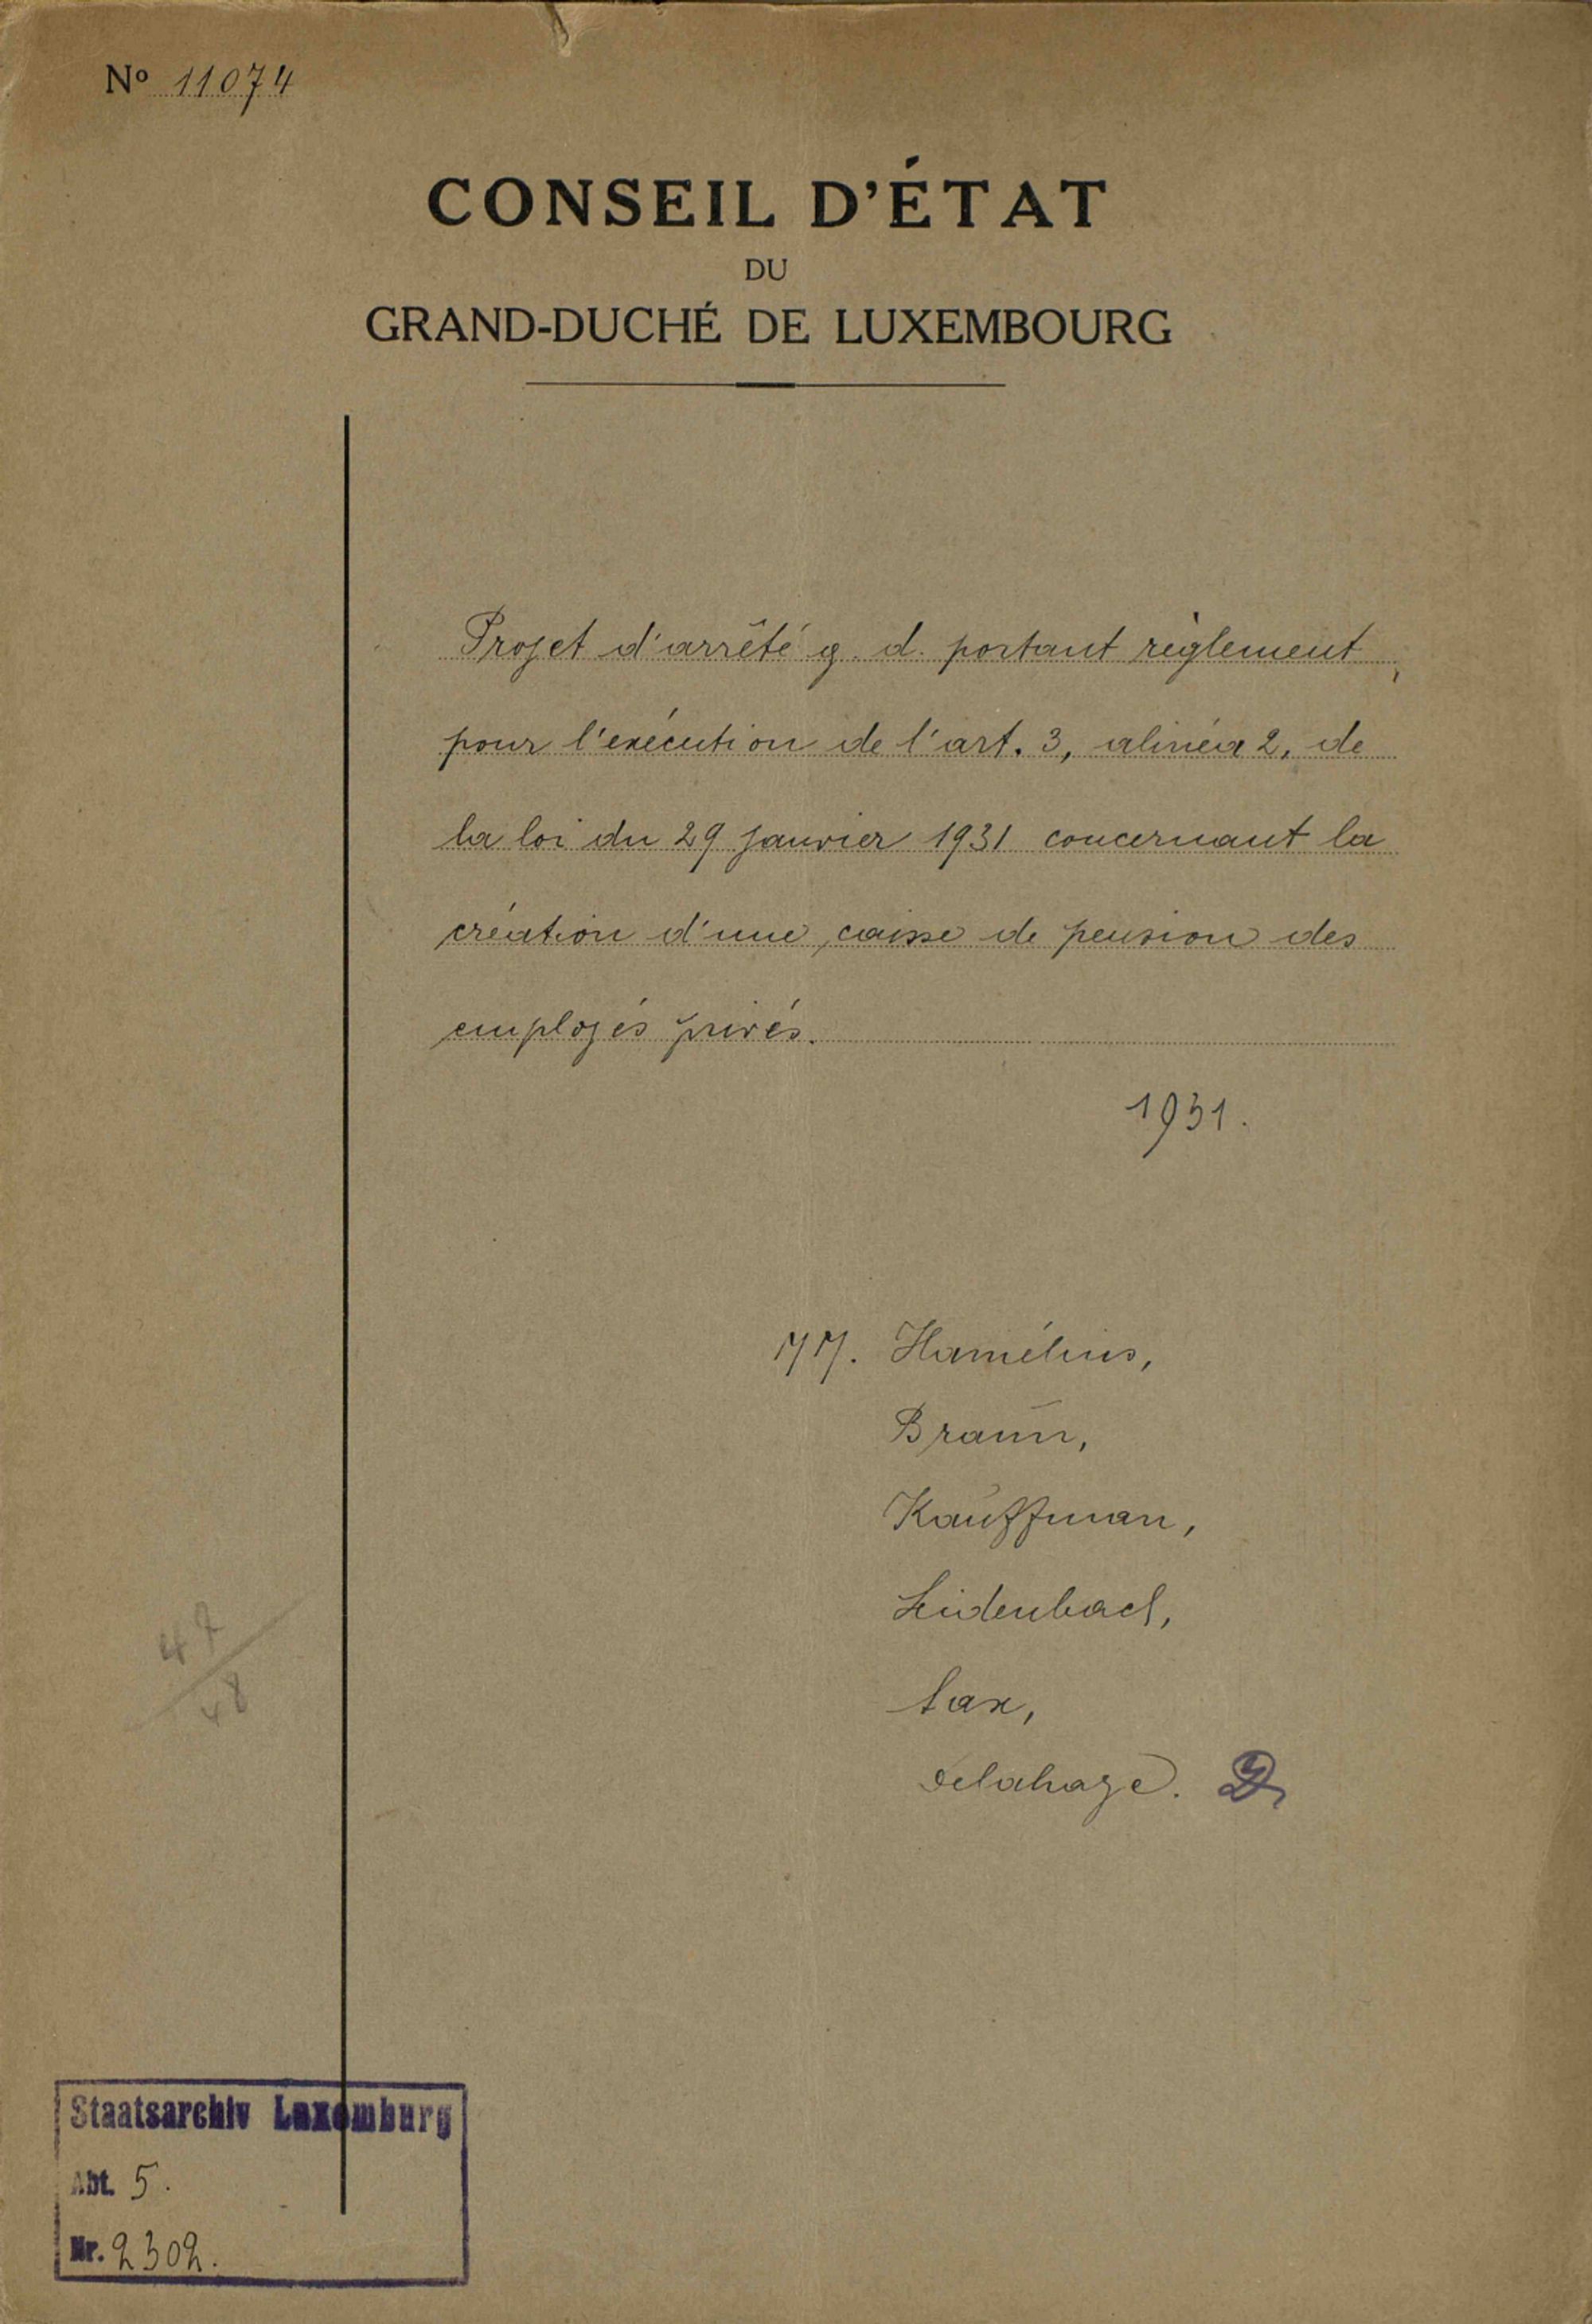 Nº 11074
CONSEIL D'ÉTAT
DU
GRAND-DUCHÉ DE LUXEMBOURG
Projet d'arrêté g. d. portant règlement
pour l'exécution de l'art. 3, alinéa 2, de
la loi du 29 janvier 1931 concernant la
création d'une caisse de pension des
employés privés.
1931.
MM. Hamélius,
Braun,
Kauffman,
Leidenbach,
Sax,
Delahaye.
47
48
Staatsarchiv Luxemburg
Abt. 5.
Nr. 2302.